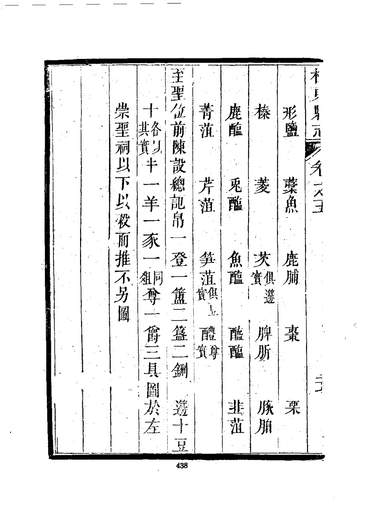 形鹽 藁魚 鹿脯 棗 栗
榛 菱 芡實俱籩 脾肵 豚胉
鹿醢 兎醢 魚醢 醓醢 韭菹
菁菹 芹菹 筍菹實俱豆 醴實尊
至聖位前陳設總記帛一登一簠二簋二鉶 籩十豆
十各以其實半一羊一豕一同俎尊一爵三具圖於左
崇聖祠以下以殺而推不另圖
438